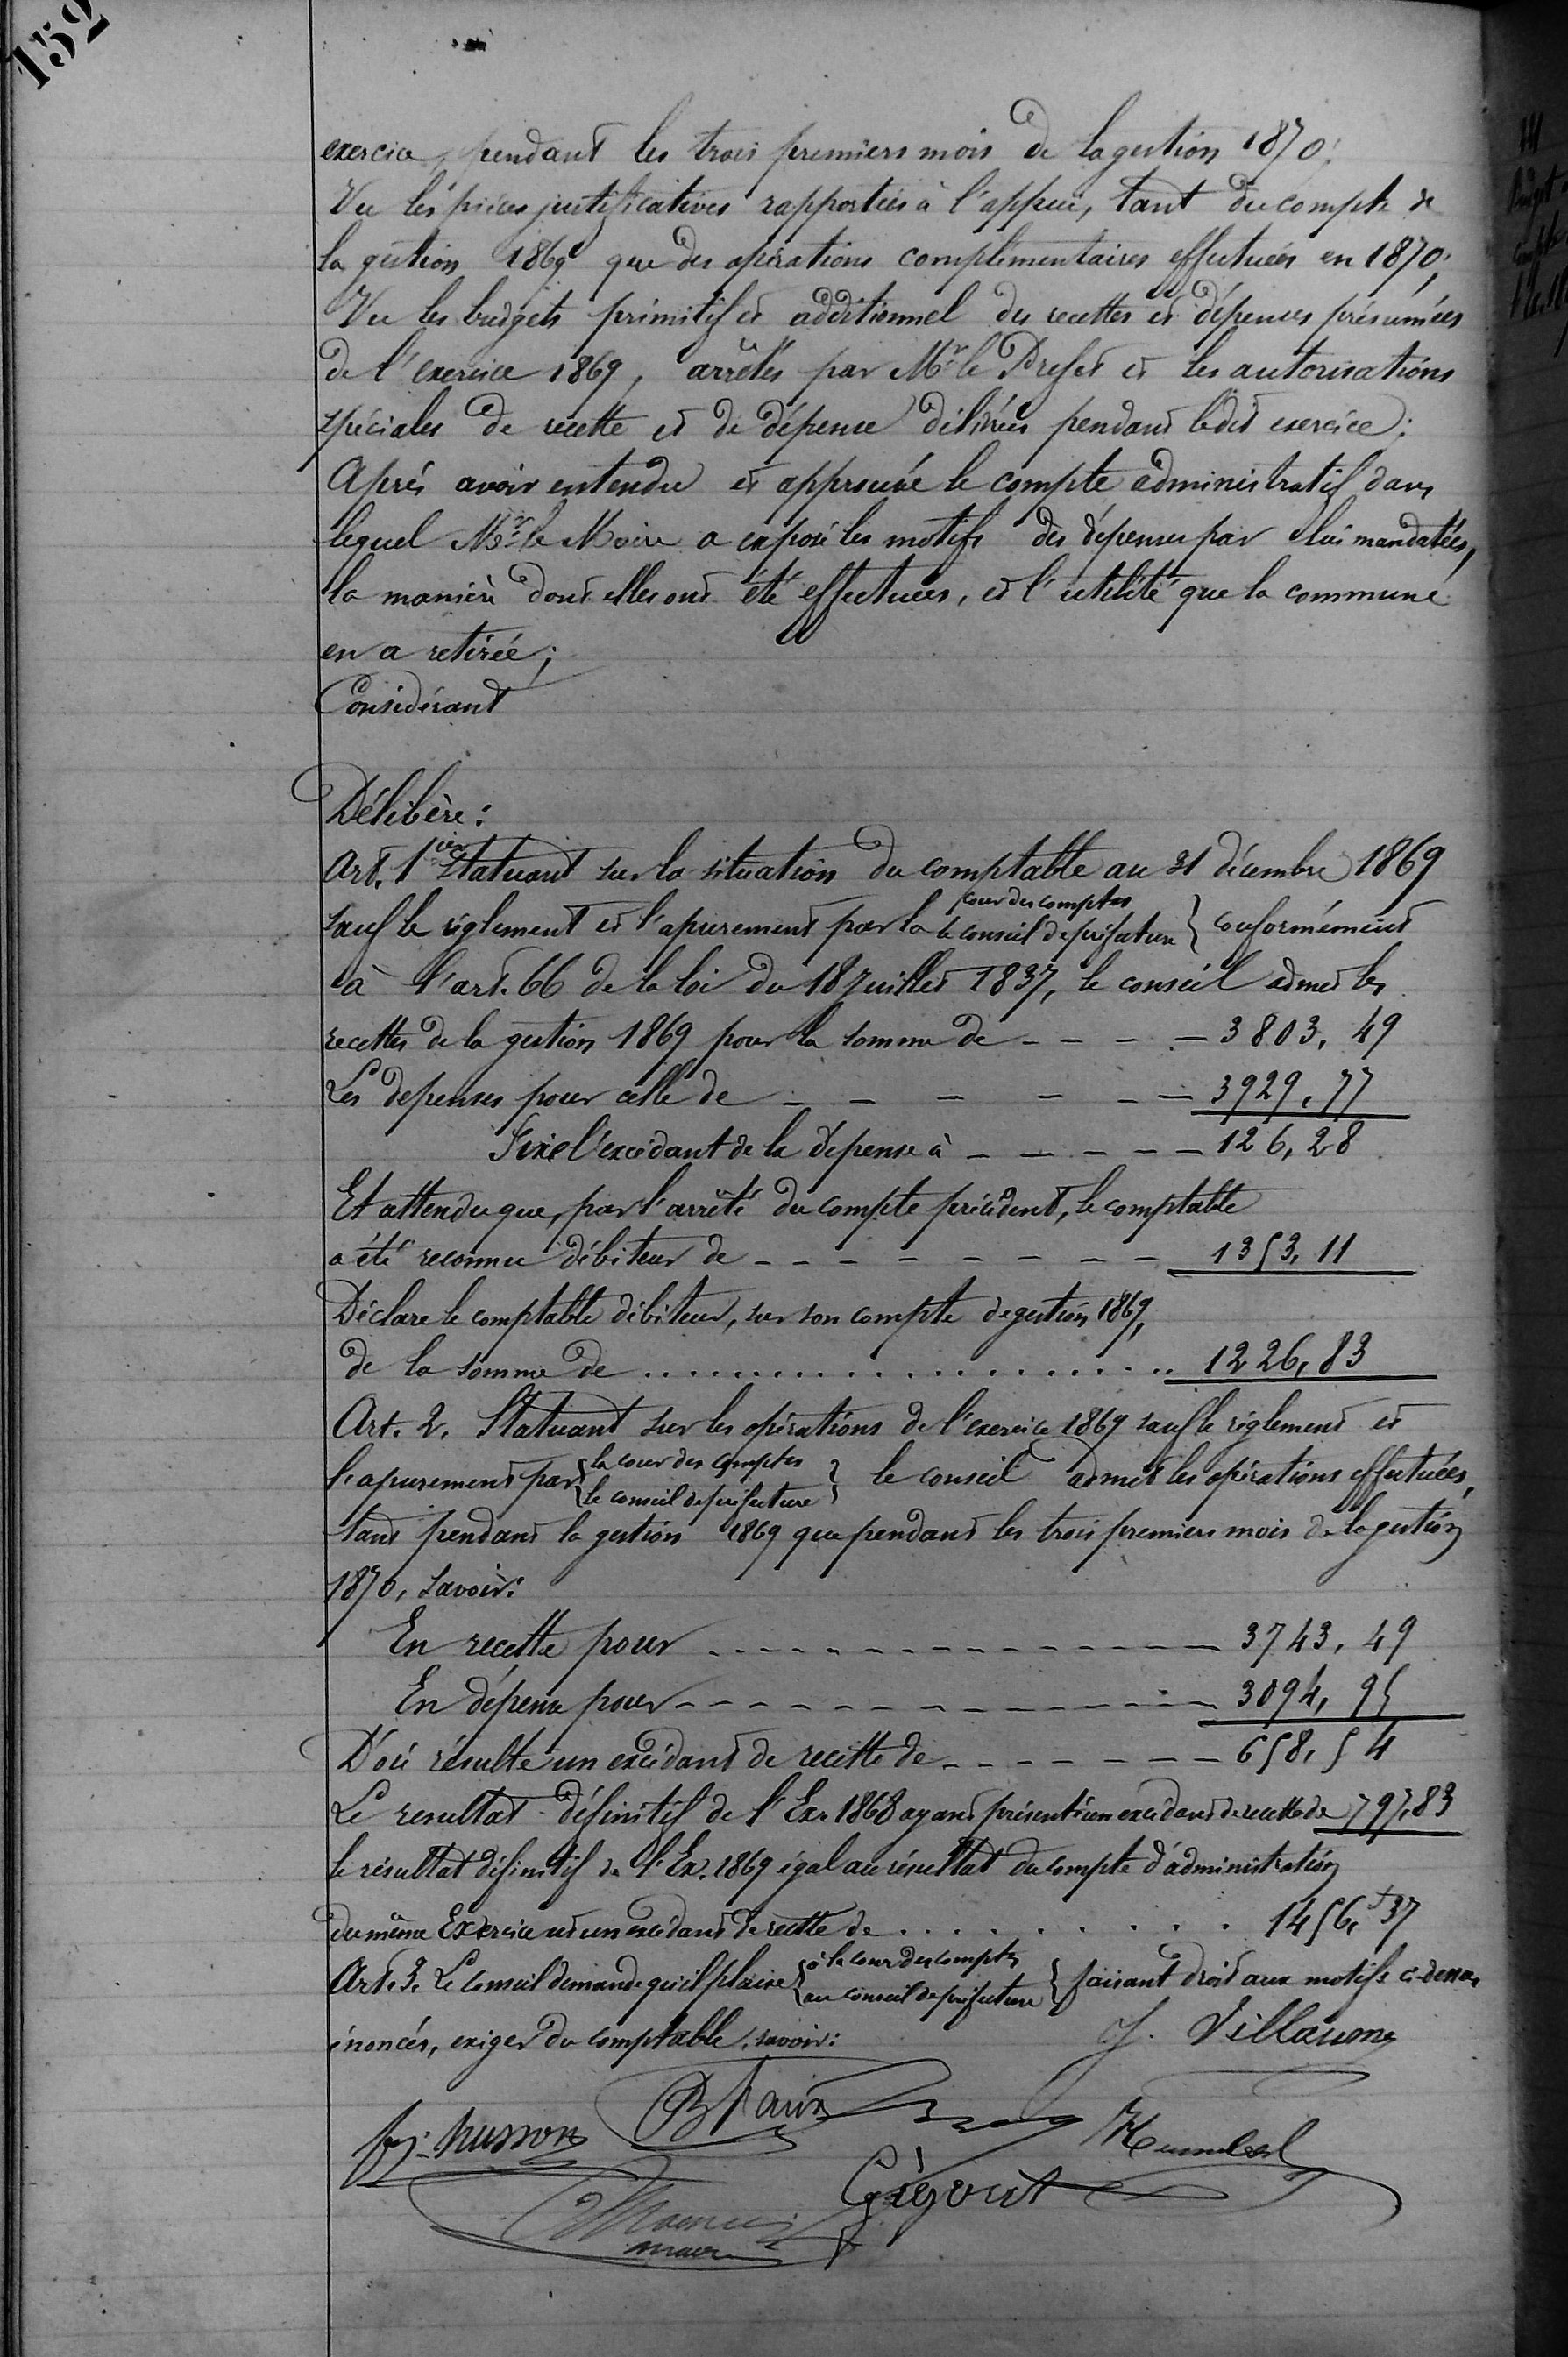 152
exercice, pendant les trois premiers mois de la gestion 1870;
Vu les pièces justificatives rapportées à l'appui, tant du compte de
la gestion 1869 que des opérations complémentaires effectuées en 1870;
Vu les budgets primitif et additionnel des recettes et dépenses présumées
de l'exercice 1869, arrêtés par Mr le Préfet et les autorisations
spéciales de recette et de dépense délivrées pendant ledit exercice;
Après avoir entendu et approuvé le compte administratif dans
lequel Mr le Maire a exposé les motifs des dépenses par lui mandatées,
la manière dont elles ont été effectuées, et l'utilité que la commune
en a retirée;
Considérant
Délibère:
Art. 1er Statuant sur la situation du comptable au 31 décembre 1869
sauf le règlement et l'apurement par la cour des comptes le conseil de préfecture } conformément
à l'art. 66 de la loi du 18 Juillet 1837, le conseil admet les
recettes de la gestion 1869 pour la somme de - - - - 3803, 49
Les depenses pour celle de - - - - - - 3929, 77
Fixe l'excédant de la dépense à - - - - - 126, 28
Et attendu que, par l'arrêté du compte précédent, le comptable
a été reconnu débiteur de - - - - - - - - 1353, 11
Déclare le comptable débiteur, sur son compte de gestion 1869,
de la somme de .................... 1226, 83
Art. 2. Statuant sur les opérations de l'exercice 1869 sauf le règlement et
l'apurement par { la cour des comptes le conseil de préfecture } le conseil admet les opérations effectuées,
tant pendant la gestion 1869 que pendant les trois premiers mois de la gestion
1870, savoir:
En recette pour - - - - - - - - - - - - 3743, 49
En dépense pour - - - - - - - - - - - - 3094, 95
D'où résulte un excédant de recette de - - - - - - - 658, 54
Le resultat définitif de l'Ex. 1868 ayant présenté un excédant de recette de 797,83
le résultat définitif de l'Ex. 1869 égal au résultat du compte d'administration
du même Exercice est un excédant de recette de . . . . . . . . . 1456, 37
Art. 3. Le Conseil demande qu'il plaise { à la cour des comptes au conseil de préfecture } faisant droit aux motifs ci-dessus
énoncés, exiger du comptable, savoir:
J. Villaume
husson
Gégout
maire